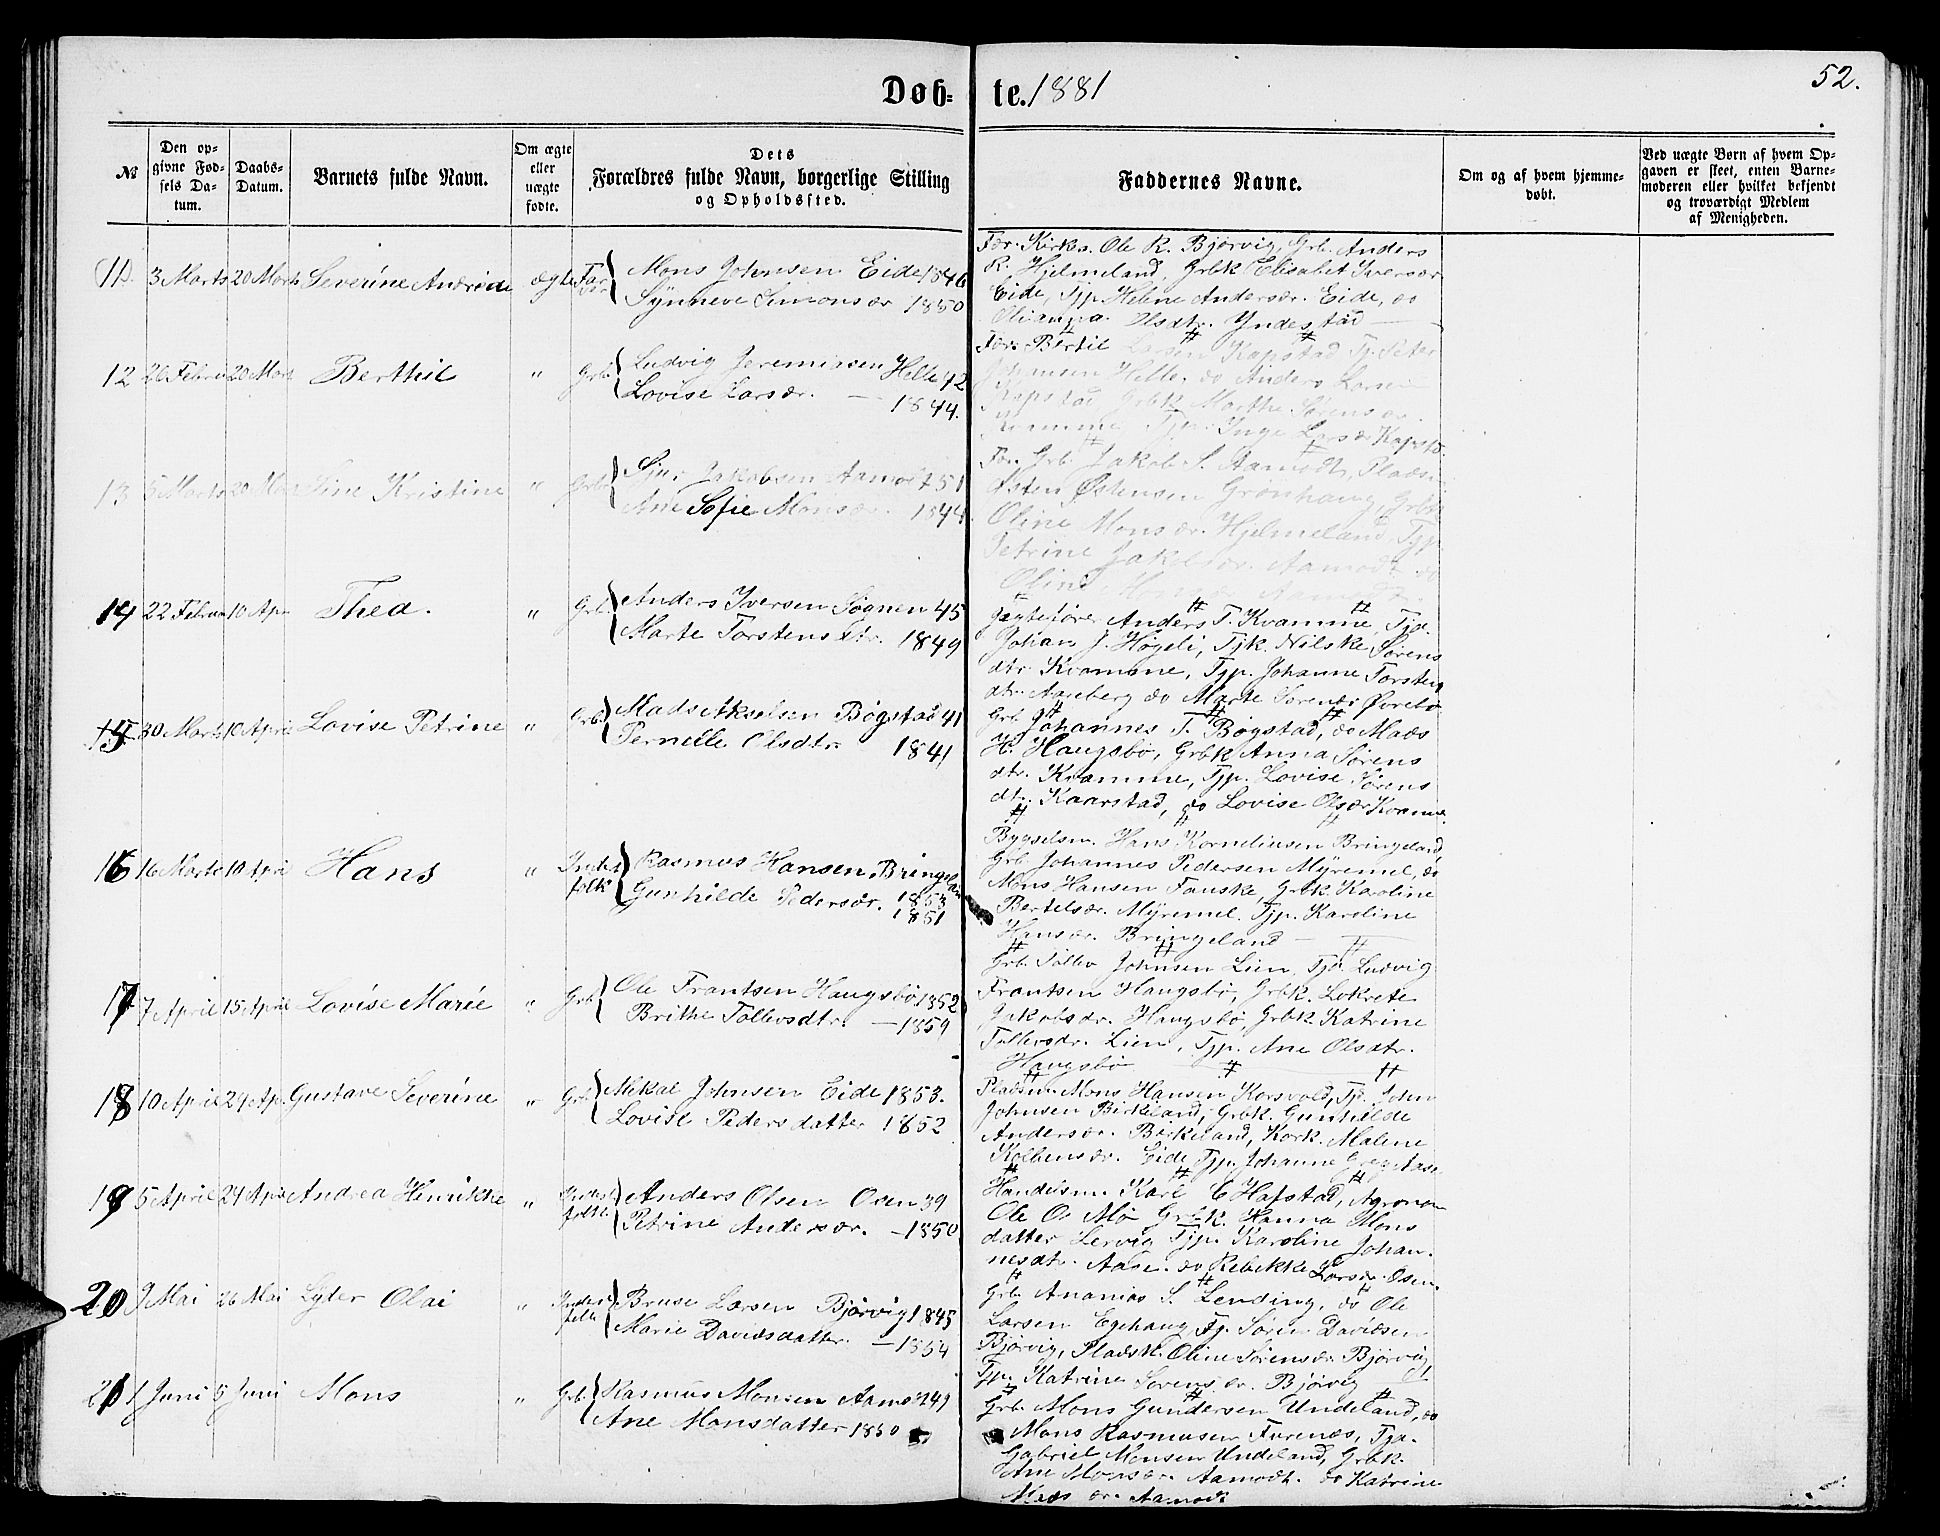 Døb-te. 1881
52.
№
Den opgivne Fødsels Datum.
Daabs-Datum.
Barnets fulde Navn.
Om ægte eller uægte fødte.
Dets Forældres fulde Navn, borgerlige Stilling og Opholdssted.
Faddernes Navne.
Om og af hvem hjemmedøbt.
Ved uægte Børn af hvem Opgaven er skeet, enten Barnemoderen eller hvilket bekjendt og troværdigt Medlem af Menigheden.
11. 3 Marts 20 Marts Severine Andrine ægte
Mons Johnsen Eide 1846
Synneve Simonsdr 1850
Før. Kirks. Ole R. Bjørvig, Grb. Anders
R. Hjelmeland, Grbk Elisabet Iversdr
Eide, Tjp Helene Andersdr. Eide, do
Olsdtr. Yndestad
12 20 Marts Berthil " Grb
Ludvig Jeremiesen Helle 42
Lovise Larsdr. — 1844.
Før. Bertil Larsen Kapstad Tj. Peter
Johansen Helle, do Anders Larsen
Kapstad Grbk Marthe Sørensdr
Kvamme Tjp. Inge Larsdr Kapst.
13 5 Marts 20 Mars Sine Kristine " Grb
Sjur Jakobsen Aamot 51
Ane Sofie Monsdr. 1844
Før. Grb Jakob S. Aamodt, Plads
Østen Østensen Grønhaug, Grbk
Oline Monsdr. Hjelmeland, Tjp.
Petrine Jakobsdr. Aamodt do
Oline Aamodt.
14 22 Februar 10 Apr Thea. " Grb
Anders Iversen Sognen 45
Marte Torstensdtr. 1849
Jegtefører Anders T. Kvamme, Tjd.
Johan J. Høgeli, Tjk. Nilske Sørens
dtr Kvamme, Tjp. Johanne Torstens
dtr. Aaseberg do Marte Sørensdr Øvrebø
15 30 Marts 10 April Lovise Petrine " Grb
Mads Akselsen Bøgstad 41
Pernelle Olsdtr. 1841
Grb Johannes T. Bøgstad, do Mads
H. Haugsbø, Grbk Anna Sørens
dtr. Kvamme, Tjp. Lovise Sørens
dtr. Kaarstad, do Lovise Olsdr Kvamme
16 16 Marts 10 April Hans " Inderstfolk
Rasmus Hansen Bringeland 1853
Gunhilde Pedersdr. 1851
Bygselsm. Hans Korneliusen Bringeland
Grb Johannes Pedersen Myremel, do
Mons Hansen Fauske, Grbk. Karoline
Bertelsdr. Myremel. Tjp. Karoline
Hansdr. Bringeland —
17 7 April 15 April Lovise Marie " Grb
Ole Frantsen Haugsbø 1852
Brithe Tollevsdtr. — 1859
Grb. Tollev Johnsen Lien, Tjd. Ludvig
Frantsen Haugsbø, Grbk. Lokrete
Jakobsdr. Haugsbø, Grbk Katrine
Tollevsdr. Lien, Tjp. Ane Olsdtr.
Haugsbø
18 10 April 24 Apr Gustave Severine " Grb
Mikal Johnsen Eide 1853.
Lovise Pedersdatter 1852
Pladsm Mons Hansen Korsvold, Tjd. John
Johnsen Birkeland, Grbk. Gunhilde
Andersdr. Birkeland, Kork. Malene
Kolbensdr. Eide Tjp. Johanne
19 5 April 24 April Andrea Henrikke " Inderstfolk
Anders Olsen Osen 39
Petrine Andersdr. — 1850
Handelsm. Karl E Hafstad, Agronom
Ole O. Mo Grbk. Hanna Mons
datter Lervig Tjp. Karoline Johan-
nesdtr. Aase. do Rebekke Larsdr Osen.
20 9 Mai 26 Mai Syler Olai " Inderstfolk
Bruse Larsen Bjørvig 1845
Marie Davidsdatter. — 1854
Grb Ananias S. Lending, do Ole
Larsen Egehaug Tj. Søren Davidsen
Bjørvig, Pladsk. Oline Sørensdr. Bjørvig
Tjp. Katrine Sørensdr. Bjørvig
21 1 Juni 5 Juni Mons " Grb
Rasmus Monsen Aamot 49
Ane Monsdatter 1850
Grb. Mons Gundersen Undeland, do
Mons Rasmusen Furenæs, Tjd.
Gabriel Monsen Undeland, Grbk.
Ane Monsdr. Aamodt. do Katrine
Madsdr. Aamodt